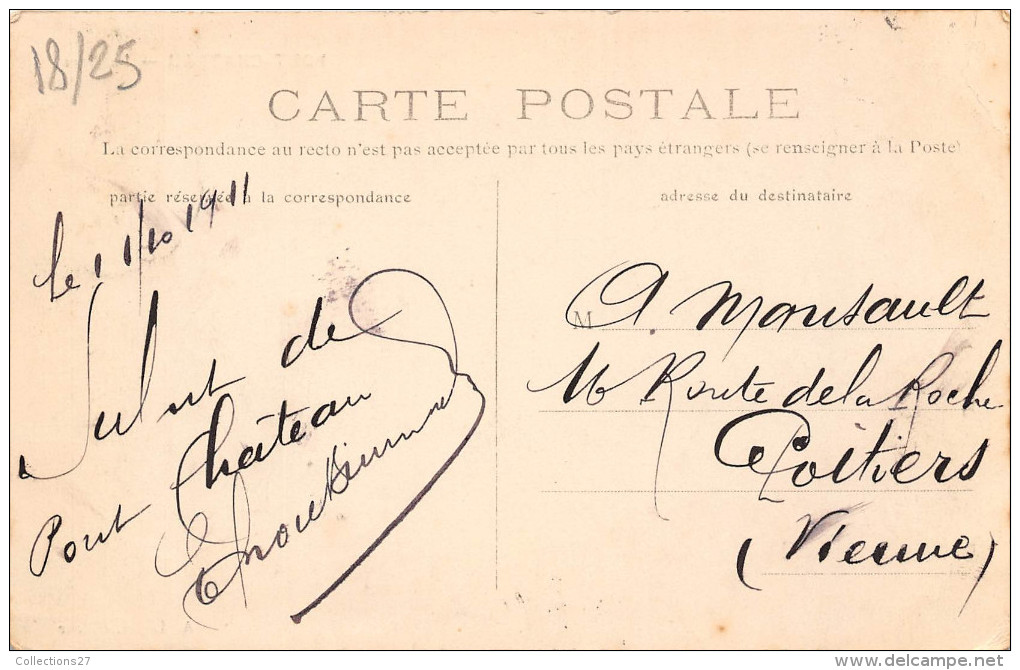 18/25
CARTE POSTALE
La correspondance au recto n'est pas acceptée par tous les pays étrangers (se renseigner à la Poste)
partie réservée à la correspondance
le 11/10 1911
Salut de
Pont Château
adresse du destinataire
M A. Mansault
16 Route de la Roche
Poitiers
(Vienne)
Collections27
delcampe.net